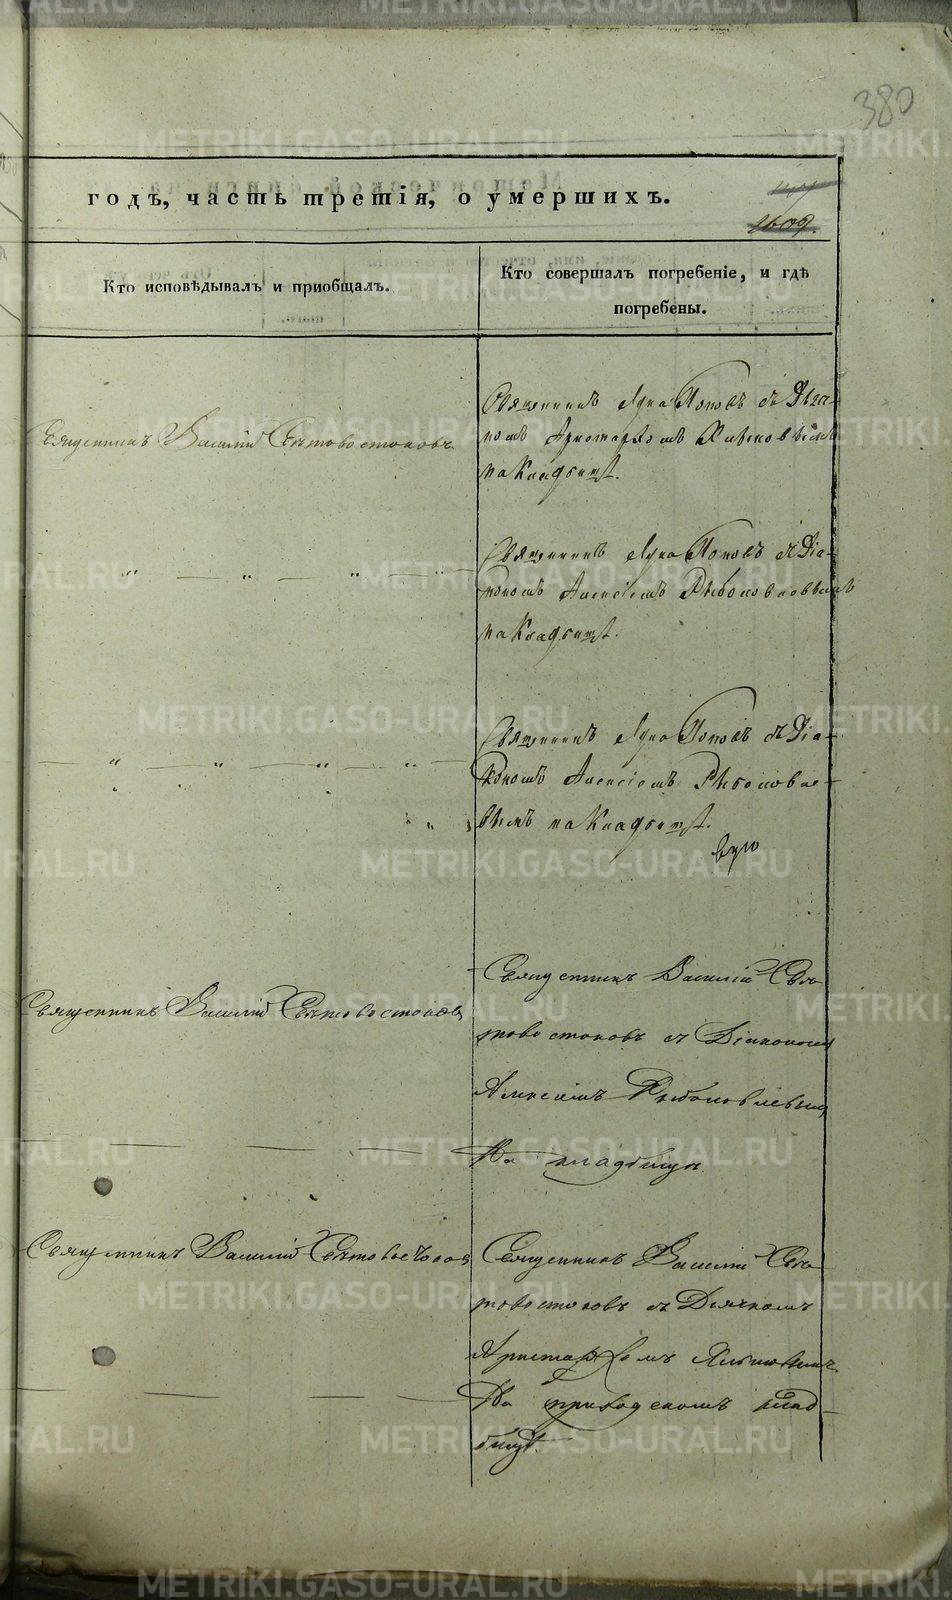 380
годъ, часть третія, о умершихъ.
1609.
Кто исповѣдывалъ и приобщалъ.
Кто совершалъ погребеніе, и гдѣ
погребены.
Священникъ Василій Свѣтовостоковъ
Священникъ Лука Поповъ съ Дьяч-
комъ Аристархомъ
на Кладбищѣ.
Священникъ Лука Поповъ съ Діа-
кономъ Алексіемъ Рыболовлевымъ
на Кладбищѣ.
Священникъ Лука Поповъ съ Діа-
кономъ Алексіемъ Рыболовле-
вымъ на Кладбищѣ.
Священникъ Василій Свѣтовостоковъ
Священникъ Василій Свѣ-
товостоковъ съ Діакономъ
Алексіемъ Рыболовлевымъ
На кладбищѣ.
Священникъ Василій Свѣтовостоковъ
Священникъ Василій Свѣ-
товостоковъ съ Дьячкомъ
Аристархомъ
На приходскомъ клад-
бищѣ.
METRIKI.GASO-URAL.RU